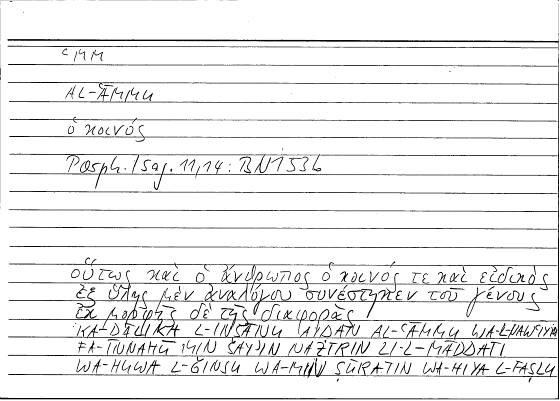 ʿMM
AL-ʿĀMMU
ὁ κοινός
Porph. Isag. 11,14: BN1536
οὕτως καὶ ὁ ἄνθρωπος ὁ κοινός τε καὶ εἰδικὸς
ἐξ ὕλης μὲν ἀναλόγου συνέστηκεν τοῦ γένους
ἐκ μορφῆς δὲ τῆς διαφορᾶς
KA-ḎĀLIKA L-INSĀNU AYḌAN AL-ʿĀMMU WA-L-NAWʿIYU
FA-INNAHŪ MIN ŠAYʾIN NAẒĪRIN LI-L-MĀDDATI
WA-HUWA L-ǦINSU WA-MIN ṢŪRATIN WA-HIYA L-FAṢLU